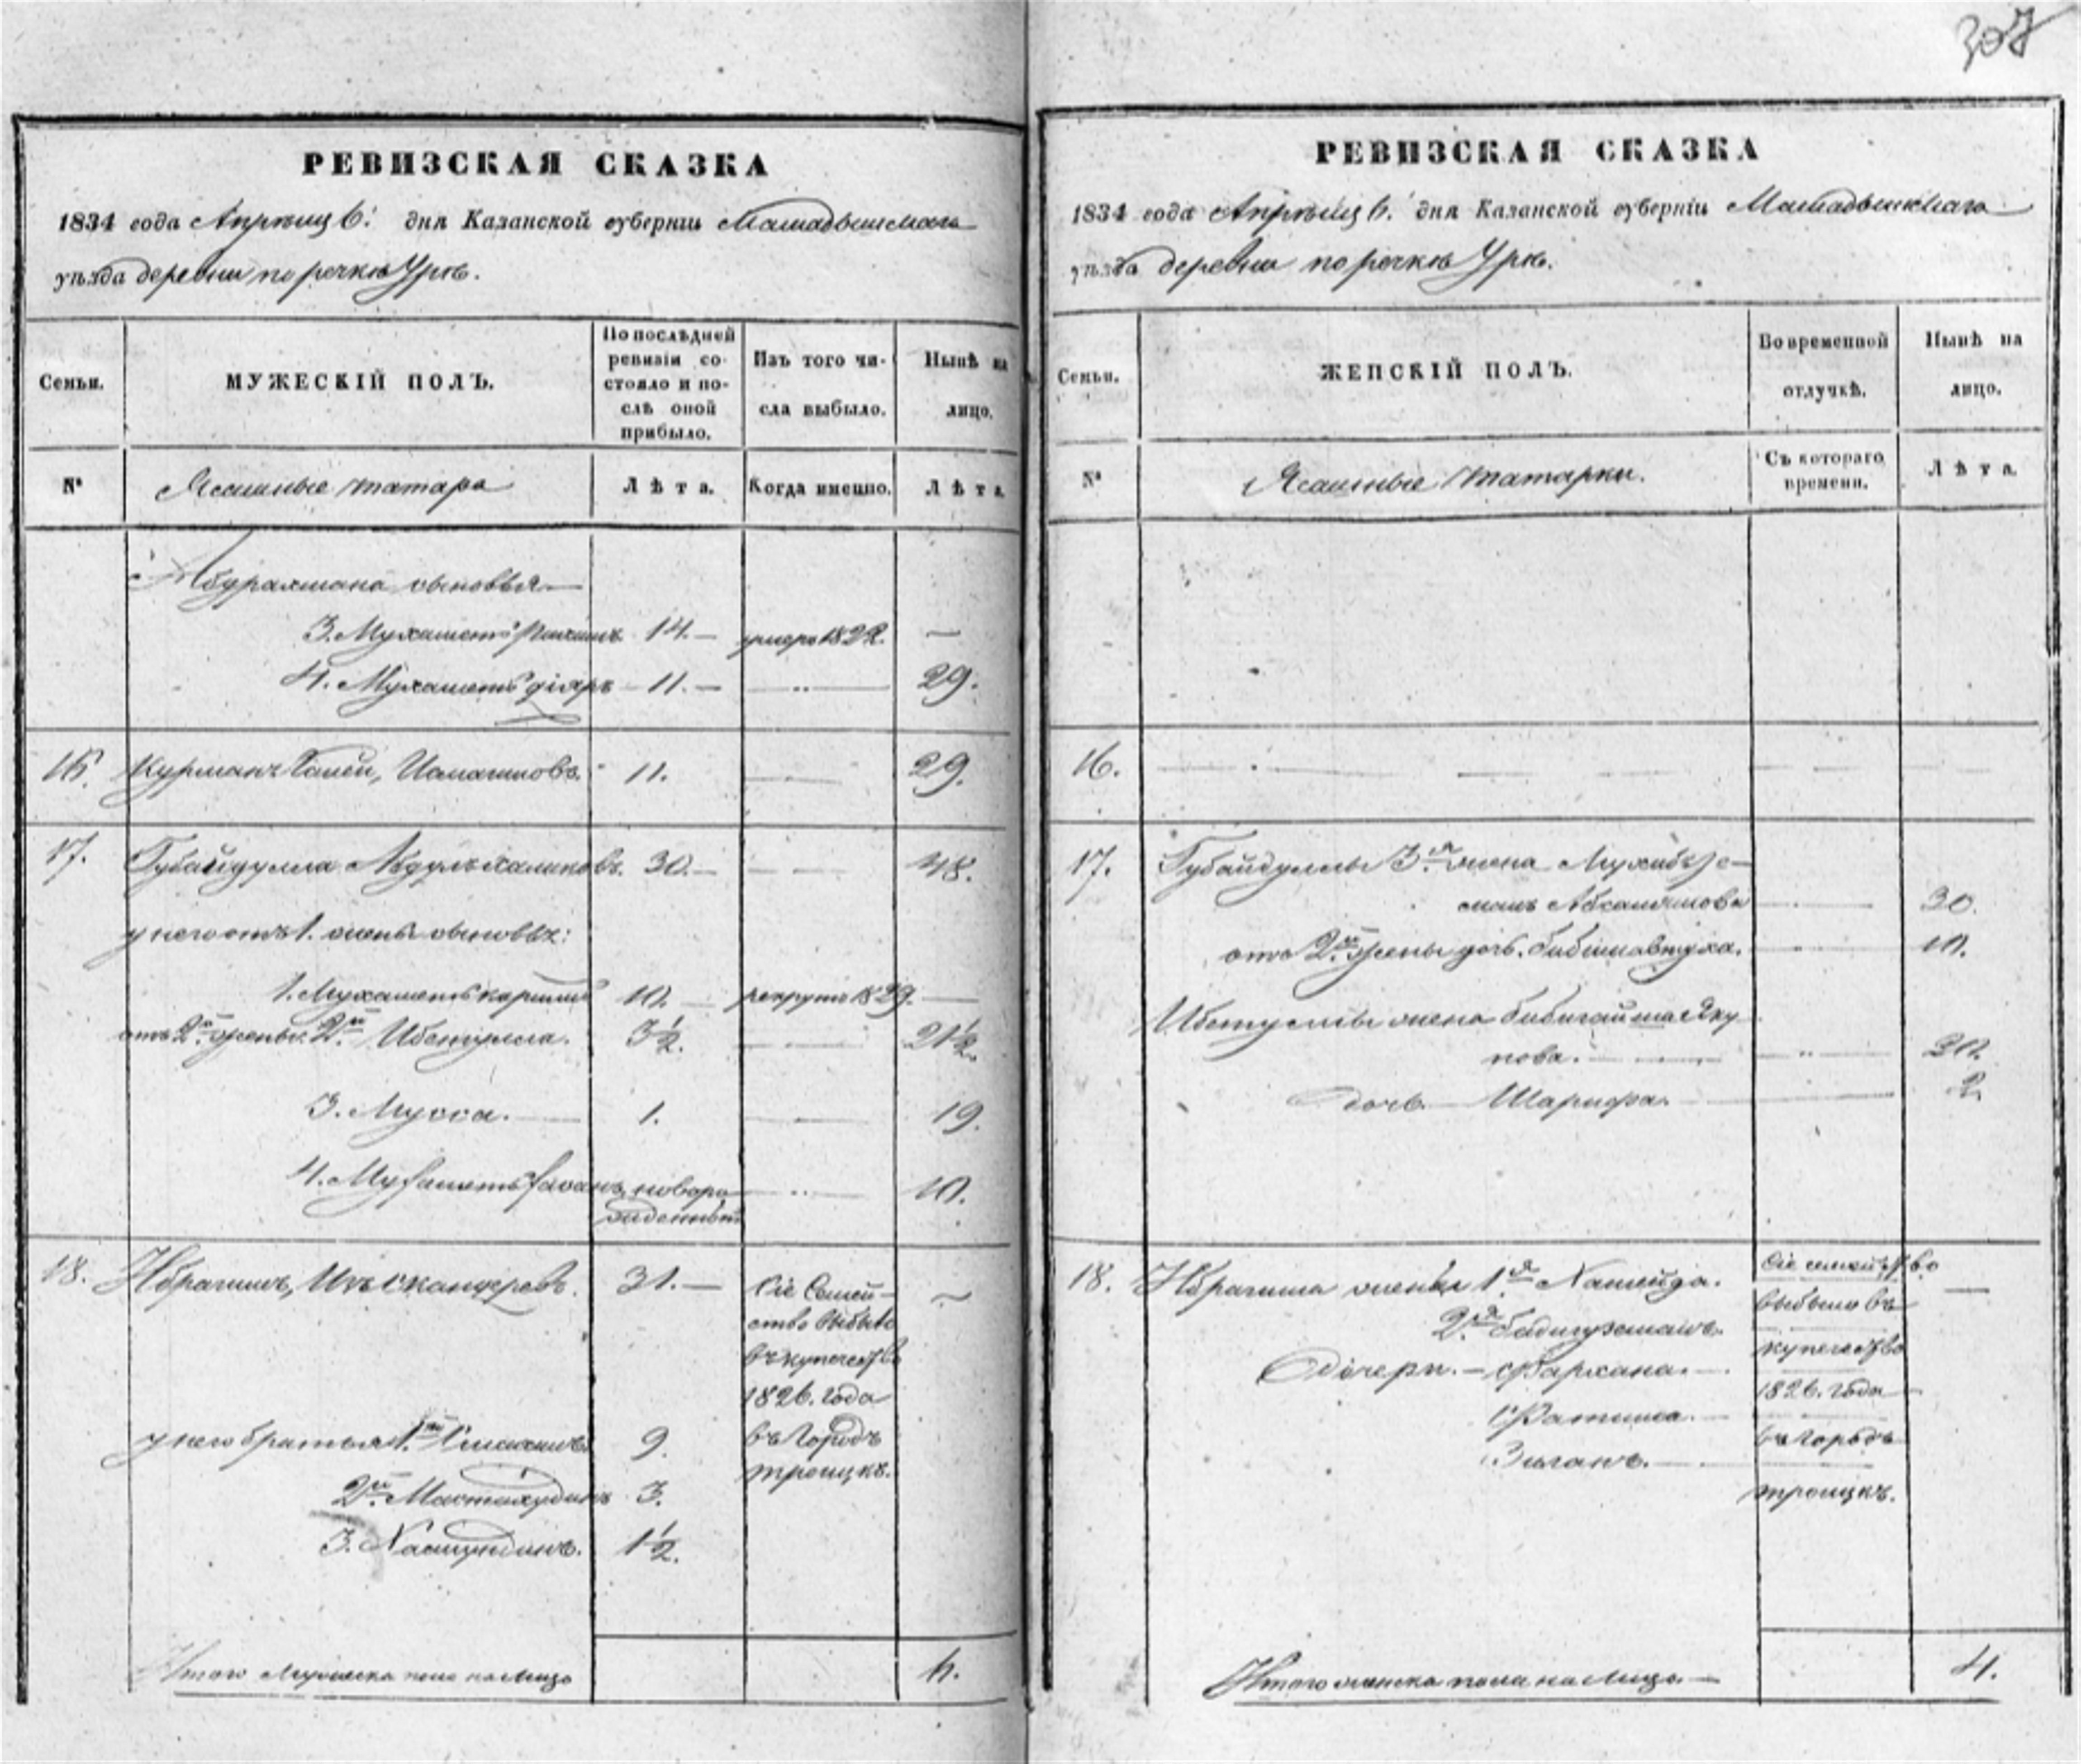 307
РЕВИЗСКАЯ СКАЗКА
1834 года Апрѣля 6. дня Казанской губерніи Мамадышскаго
уѣзда деревни по речкѣ Уркѣ.
Семьи.
МУЖЕСКІЙ ПОЛЪ.
По послѣдней
ревизіи со-
стояло и по-
слѣ оной
прибыло.
Изъ того чи-
сла выбыло.
Нынѣ на
лицо.
№
Ясашные татара
Лѣта.
Когда именно.
Лѣта
Абдрахмана сыновья
3. Мухаметъ Рахимъ 14. умеръ 1822. —
4. Мухаметъ 11. — 29.
16. Курманъ Галей, 11. 29.
17. Губайдулла Абдулъ Халиковъ. 30. 48.
у него отъ 1. жены сыновья:
1. Мухаметъ каримъ 10. рекрутъ 1829.
отъ 2й жены. 2й Ибетулла. 3½. 21½.
3. Мусса. 1. 19.
4. новоро
жденный 10.
18. Ибрагимъ, Искандеровъ. 31.
Сіе Семей-
ство выбыло
въ купечество
1826. года
въ Городъ
троицкъ.
у него братья 1й 9.
2й 3.
3. 1½.
Итого Мужеска пола на лицо 6.
РЕВИЗСКАЯ СКАЗКА
1834 года Апрѣля 6. дня Казанской губерніи Мамадышскаго
уѣзда деревни по речкѣ Уркѣ.
Семьи.
ЖЕНСКІЙ ПОЛЪ.
Во временной
отлучкѣ.
Нынѣ на
лицо.
№
Ясашные татарки.
Съ котораго
времени.
Лѣта
16.
17. Губайдуллы 3я жена
30.
отъ 2й жены дочь. 10.
Ибетуллы жена Яку
пова. 20.
дочь Шарифа. 2.
18. Ибрагима жены 1я —
2я
дочери. — Фархана.
Фатима.
Сіе семейство
выбыло въ
купечество
1826. года
въ Городъ
троицкъ.
Итого женска пола на лицо — 4.